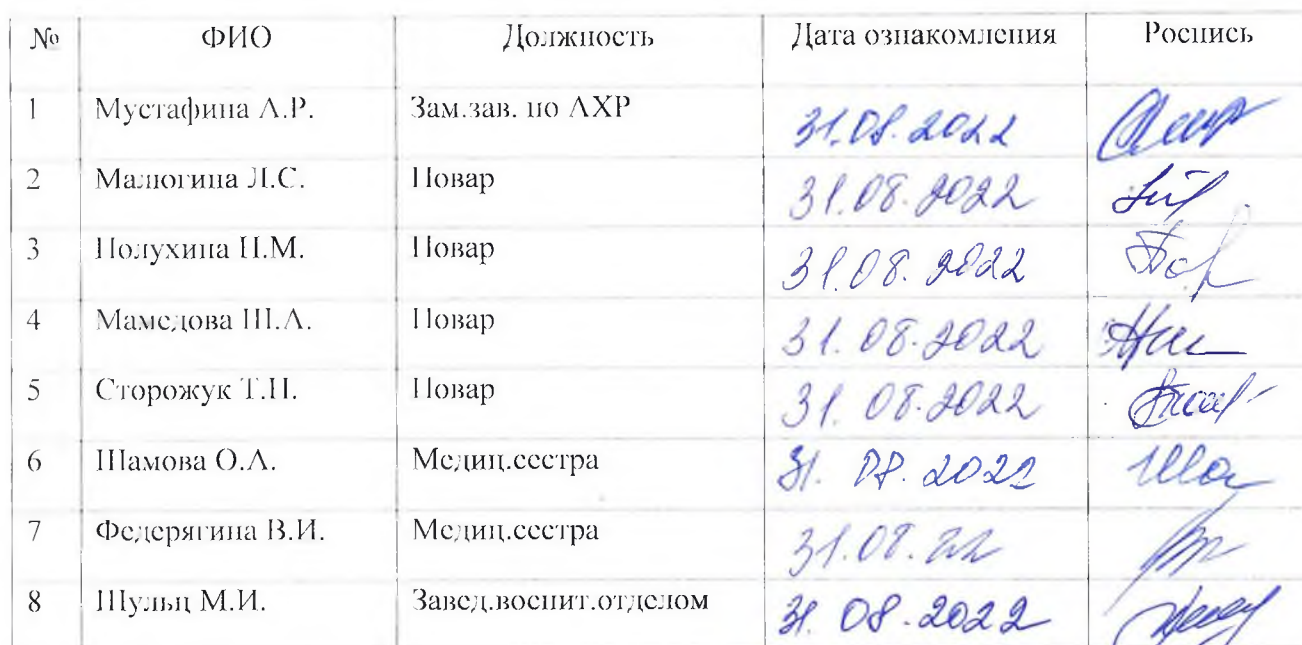 № ФИО Должность Дата ознакомления Роспись
1 Мустафина А.Р. Зам.зав. по АХР 31.08.2022
2 Малюгина Л.С. Повар 31.08.2022
3 Полухина Н.М. Повар 31.08.2022
4 Мамедова Ш.А. Повар 31.08.2022
5 Сторожук Т.Н. Повар 31.08.2022
6 Шамова О.А. Медиц.сестра 31.08.2022
7 Федерягина В.И. Медиц.сестра 31.08.22
8 Шульц М.И. Завед.воспит.отделом 31.08.2022